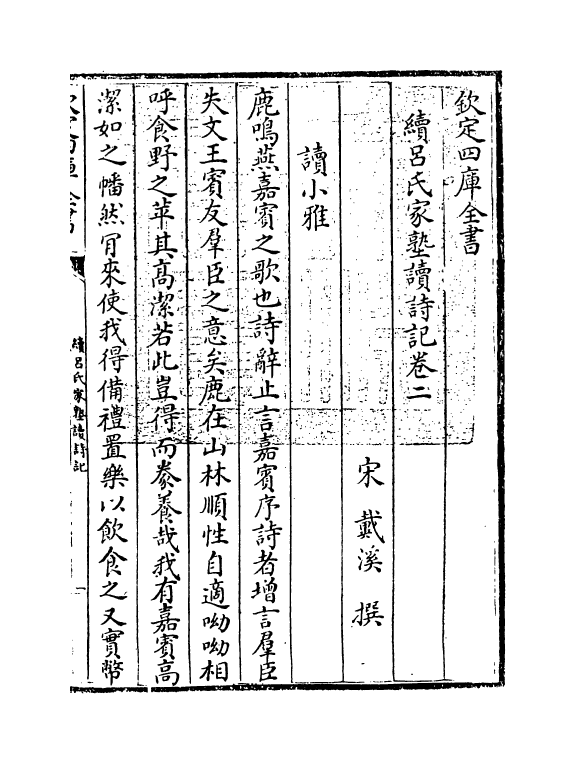 欽定四庫全書
續呂氏家塾讀詩記卷二
宋 戴溪 撰
讀小雅
鹿鳴燕嘉賓之歌也詩辭止言嘉賓序詩者增言羣臣
失文王賓友羣臣之意矣鹿在山林順性自適呦呦相
呼食野之苹其高潔若此豈得而豢養哉我有嘉賓高
潔如之幡然肎來使我得備禮置樂以飲食之又實幣
續呂氏家塾讀詩記